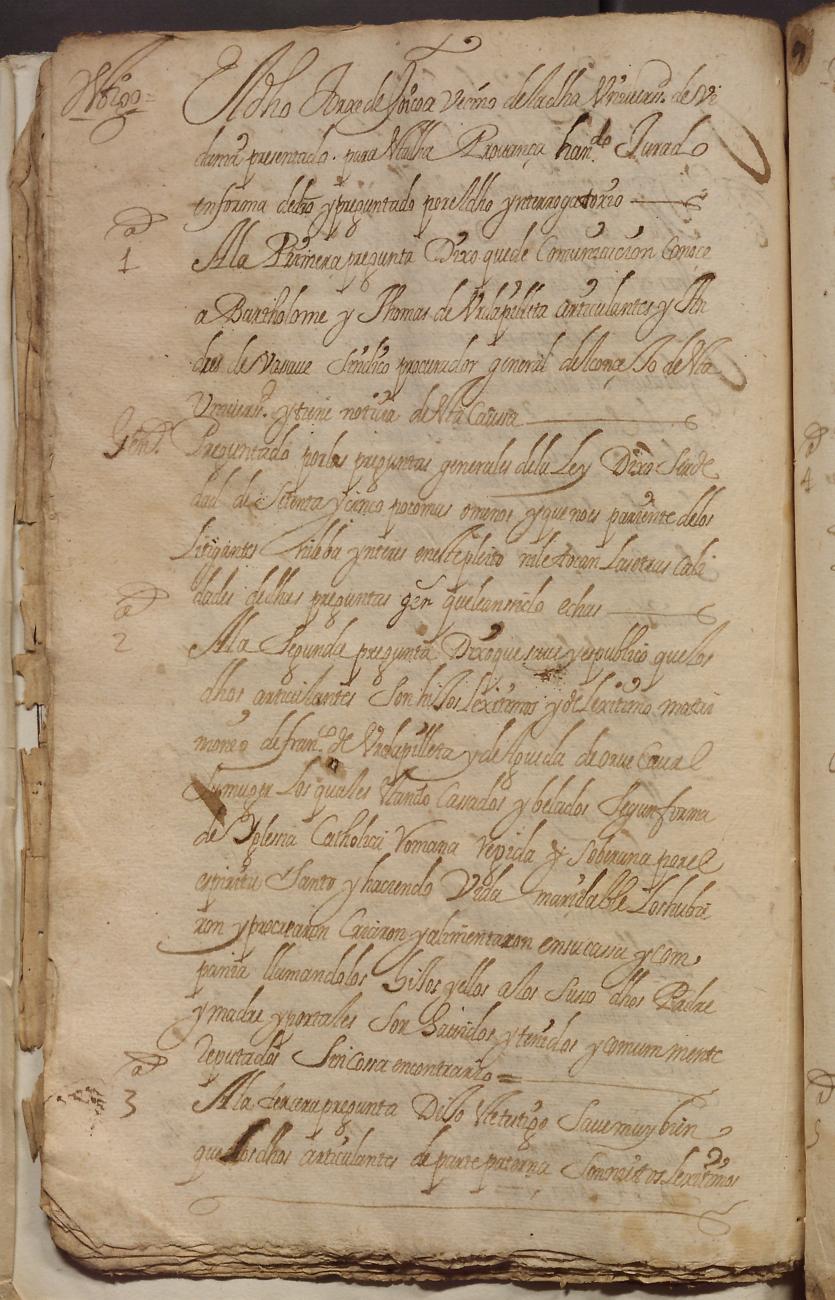 El dho Jorge de vecino de la dha Univers. de Vi
dania presentado para esta dha Provança hauiº Jurado
en forma de dro y preguntado por el dho ynterrogatorio
ad
1 A la Primera pregunta Dixo que de Comunicacion Conoce
a Bartholome y Thomas de articulantes y An
dres de Sindico procurador general del conçejo de esta
Univers. y tiene noticia de esta Caussa
Gen. Preguntado por las preguntas generales de la Ley Dixo Ser de
hedad de Setenta y cinco poco mas o menos y que no es pariente de los
Litigantes ni lleba ynteres en este pleito ni le tocan Las otras Cali
dades de dhas preguntas gen que le an sido echas
ad
2 A la Segunda pregunta Dixo que saue y es publico que los
dhos articulantes Son hijos Lexitimos y de Lexitimo matri
monio de fran.co de y de Agueda de
Su muger Los quales estando Cassados y belados Segun forma
de Yglesia Catholica Romana Rejida y Soberana por el
espiritu Santo y haciendo Vida maridable Los hubie
ron y procrearon Criaron y alimentaron en su cassa y com
pania llamandolos hijos y ellos a los Suso dhos Padre
y madre y por tales Son hauidos y tenidos y comunmente
Reputados Sin cossa en contrario =
ad
3 A la tercera pregunta Dijo este testigo Saue muy bien
que los dhos articulantes de parte paterna Son nietos Lexitimos